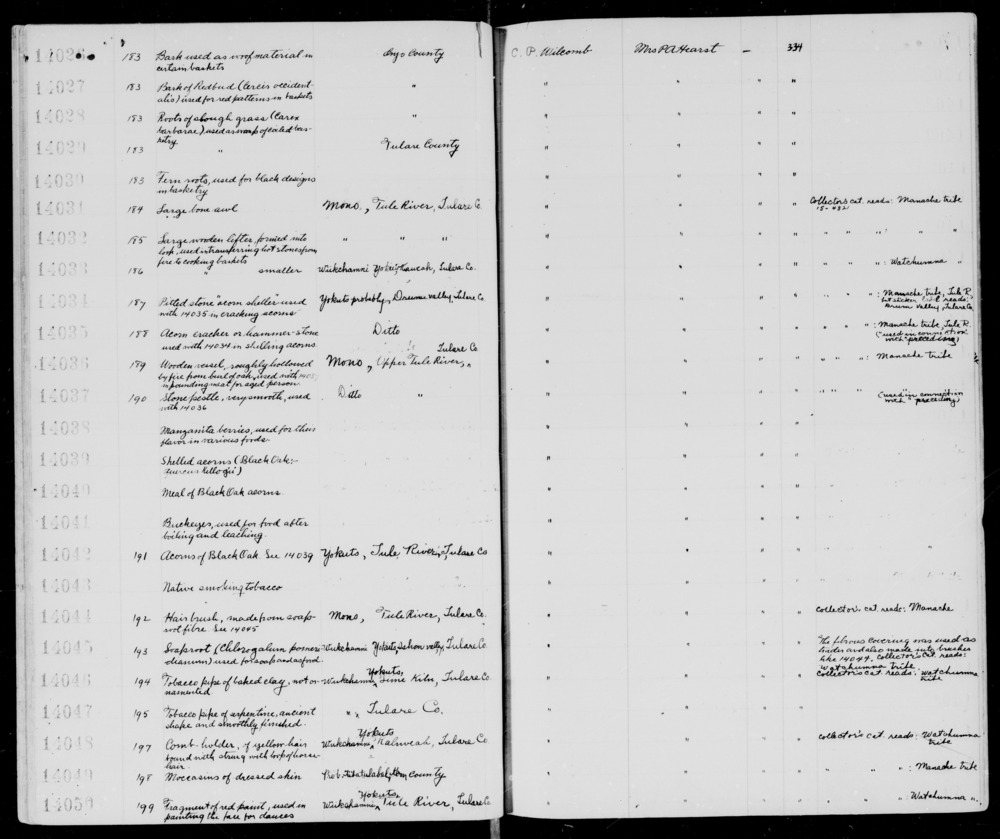 14026 183 Bark used as woof material in Inyo County C. P. Wilcomb Mrs PA Hearst — 334
certain baskets
14027 183 Bark of Redbud (Cercis occident- " " " " "
alis) used for red patterns in baskets
14028 183 Roots of slough grass (Carex " " " " "
barbarae), used as wrap of coiled bas-
ketry
14029 183 " Tulare County " " " "
14030 183 Fern roots, used for black designs " " " "
in basketry
14031 184 Large bone awl Mono, Tule River, Tulare Co. " " " " Collector's cat. reads: Manache tribe
15-482
14032 185 Large wooden lifter, formed into " " " " " " " " " " : " "
loop, used in transferring hot stones from
fire to cooking baskets
14033 186 smaller Wukchamni Yokuts, Tulare Co. " " " " " " " : Watchumna "
14034 187 Pitted stone "acorn sheller" used Yokuts probably, Drum valley, Tulare Co. " " " " " " " : Manache tribe, Tule R.
with 14035 in cracking acorns
Drum Valley, Tulare Co.
14035 188 Acorn cracker or hammer-stone Ditto " " " " " " : Manache tribe, Tule R.
used with 14034 in shelling acorns Tulare Co (used in connection
with preceding)
14036 189 Wooden vessel, roughly hollowed Mono, Upper Tule River, " " " " " " " " : Manache tribe
by fire from burl of oak, used with
in pounding meat for aged person
14037 190 Stone pestle, very smooth, used Ditto " " " " " " " " (used in connection
with 14036 with preceding)
14038 Manzanita berries, used for their " " " "
flavor in various foods.
14039 Shelled acorns (Black Oak:- " " " "
quercus kellogii)
14040 Meal of Black Oak acorns. " " " "
14041 Buckeyes, used for food after " " " "
boiling and leaching.
14042 191 Acorns of Black Oak. See 14039 Yokuts, Tule River, Tulare Co " " " " "
14043 Native smoking tobacco " " " "
14044 192 Hair brush, made from soap- Mono, Tule River, Tulare Co. " " " " collector's cat. reads: Manache
root fibre. See 14045
14045 193 Soaproot (Chlorogalum pomeri- Wukchamni Yokuts, Tulare Co " " " " "The fibrous covering was used as
dianum) used for soap and as food. and also made into brushes
like 14044. Collector's cat. reads:
Watchumna tribe.
14046 194 Tobacco pipe of baked clay, not or- Wukchamni Yokuts, Lime Kiln, Tulare Co. " " " " collector's cat. reads: Watchumna
namented tribe
14047 195 Tobacco pipe of serpentine, ancient " , Tulare Co. " " " "
shape and smoothly finished.
14048 197 Comb-holder, of yellow hair Wukchamni Yokuts, Kaweah, Tulare Co " " " " collector's cat. reads: Watchumna
bound with string with loop of horse- tribe
hair.
14049 198 Moccasins of dressed skin Prob. Tübatulabal, Kern County " " " " " " : Manache tribe
14050 199 Fragment of red paint, used in Wukchamni Yokuts, Tule River, Tulare Co " " " " " " : Watchumna "
painting the face for dances